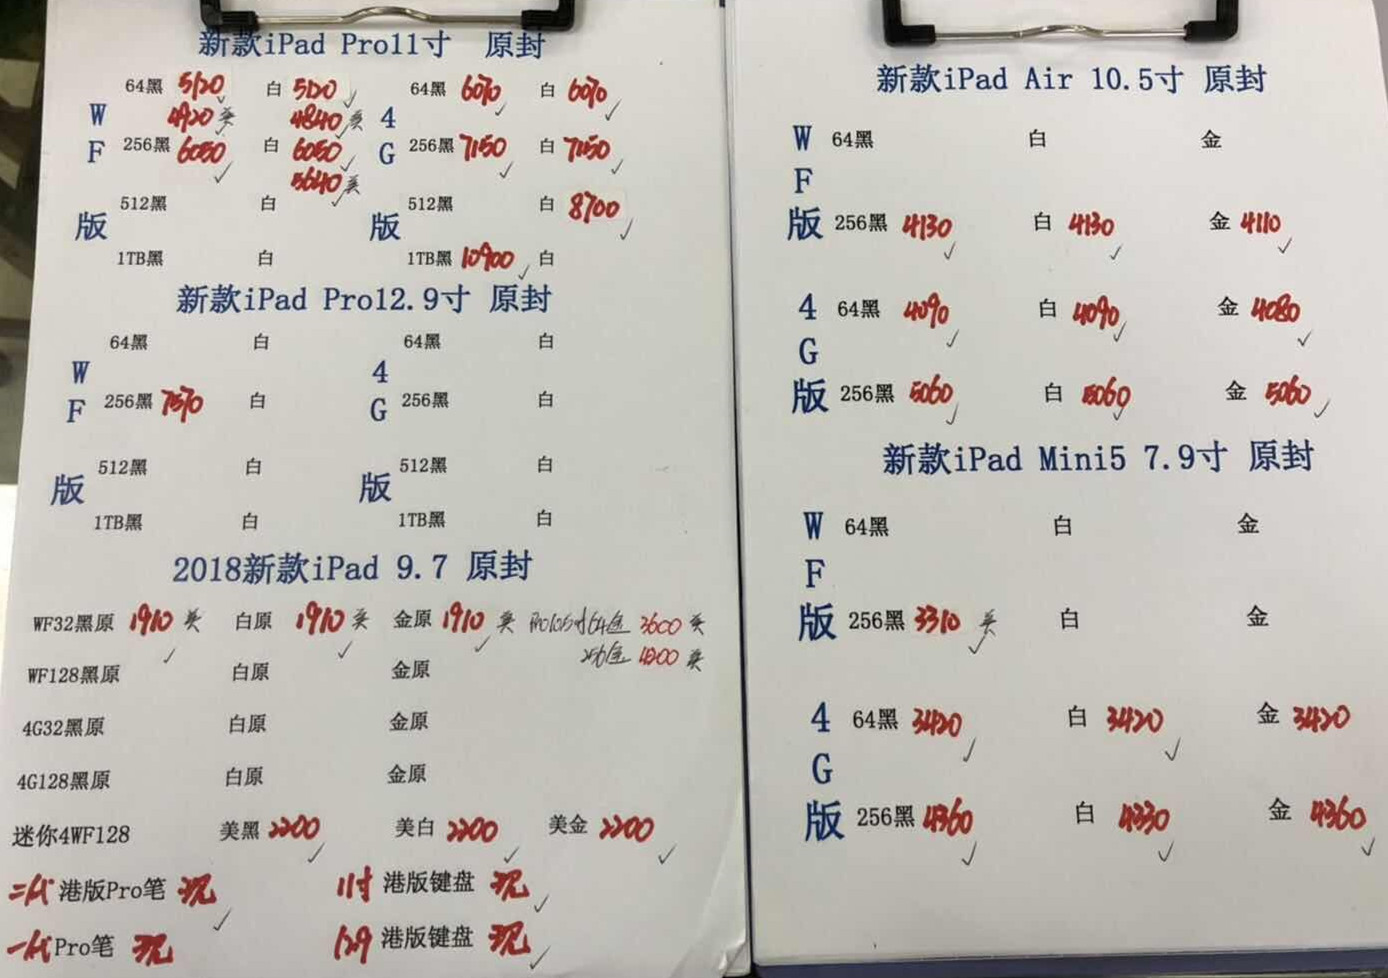 新款iPad Pro11寸 原封
64黑 5120 白 5120 64黑 6070 白 6070
W 4920 美 4840 美 4
F 256黑 6050 白 6050 G 256黑 7150 白 7150
5640 美
版 512黑 白 版 512黑 白 8700
1TB黑 白 1TB黑 10900 白
新款iPad Pro12.9寸 原封
64黑 白 64黑 白
W 4
F 256黑 7570 白 G 256黑 白
版 512黑 白 版 512黑 白
1TB黑 白 1TB黑 白
2018新款iPad 9.7 原封
WF32黑原 1910 美 白原 1910 美 金原 1910 美 Pro10.5寸64金 3600 美
256金 4200 美
WF128黑原 白原 金原
4G32黑原 白原 金原
4G128黑原 白原 金原
迷你4WF128 美黑 2200 美白 2200 美金 2200
二代 港版Pro笔 现 11寸 港版键盘 现
一代 Pro笔 现 12.9 港版键盘 现
新款iPad Air 10.5寸 原封
W 64黑 白 金
F
版 256黑 4130 白 4130 金 4110
4 64黑 4090 白 4090 金 4080
G
版 256黑 5060 白 5060 金 5060
新款iPad Mini5 7.9寸 原封
W 64黑 白 金
F
版 256黑 3310 美 白 金
4 64黑 3420 白 3420 金 3420
G
版 256黑 4360 白 4330 金 4360